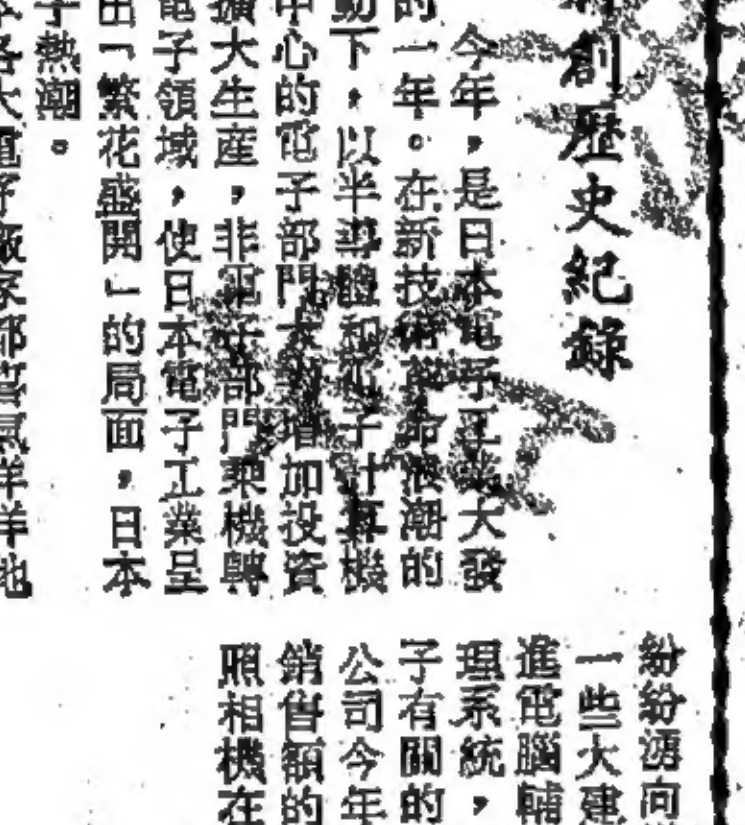 創歷史紀錄
今年，是日本電子工業大發
的一年。在新技術革命浪潮的
動下，以半導體和電子計算機
中心的電子部門大增加投資
擴大生產，非電子部門乘機轉
電子領域，使日本電子工業呈
出「繁花盛開」的局面，日本
子熱潮。
各大電子廠家都喜氣洋洋地
紛紛湧向
一些大建
進電腦輔
理系統，
子有關的
公司今年
銷售額的
照相機在